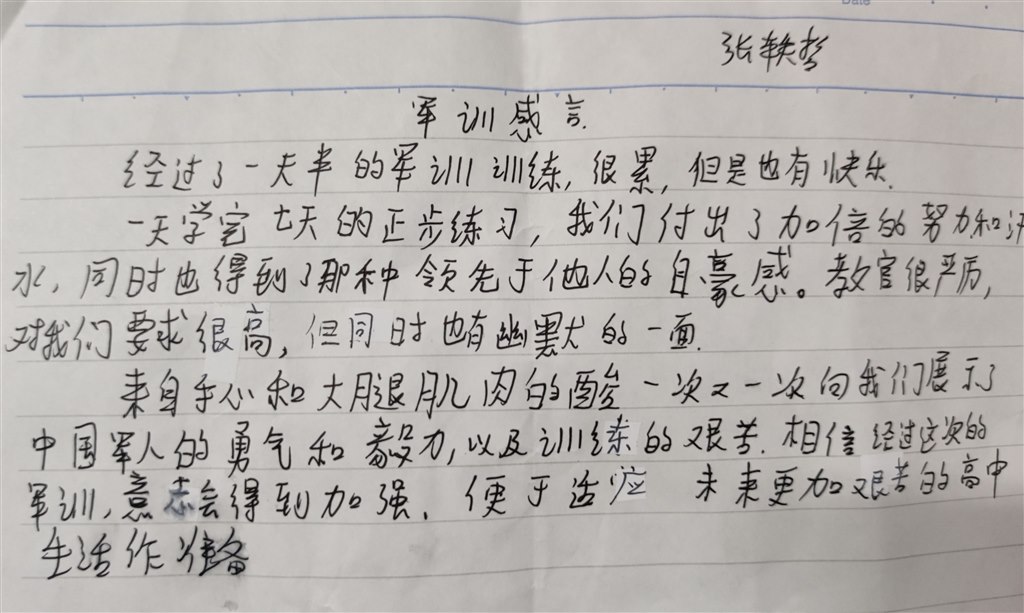 Date
张轶哲
军训感言.
经过了一天半的军训训练,很累,但是也有快乐.
一天学完七天的正步练习,我们付出了加倍的努力和汗
水,同时也得到了那种领先于他人的自豪感。教官很严厉,
对我们要求很高,但同时也有幽默的一面.
来自手心和大腿肌肉的酸一次又一次向我们展示了
中国军人的勇气和毅力,以及训练的艰苦.相信经过这次的
军训,意志会得到加强.便于适应未来更加艰苦的高中
生活作准备